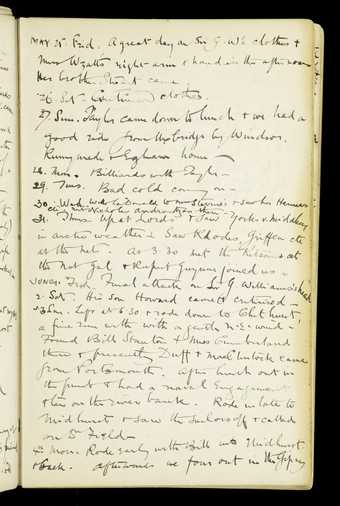 MAY 25 Frid. A great day on Sir G. W's clothes &
Miss Wyatts right arm & hand in the afternoon
Her brother came.
26. Sat. Continued clothes.
27. Sun. came down to lunch & we had a
good ride from Uxbridge by Windsor,
Runymede & Egham home
28. Mon. Billiards with
29. Tues. Bad cold coming on -
30. Wed.
31. Thurs. Up at Lords & saw Yorks v. Middlesex
in arctic weather & saw Rhodes, Griffen etc
at the net. At 3.30 met the at
the Nat Gal & Rupert joined us -
JUNE 1 Frid. Final attack on Sir G. Williams's head
2. Sat. His son Howard came & criticised -
3 Sun. Up at 6.30 & rode down to Chithurst,
a fine run with with a gentle N.E. wind -
Found Bill Stanton & Miss Cumberland
there & presently Duff & came
from Portsmouth. After lunch out in
the punt & had a naval Engagement
& tea on the river bank. Rode in late to
Midhurst & saw the sailors off & called
on Dr Field -
4 Mon. Rode early with Bill into Midhurst
& back. afterwards we four out in the